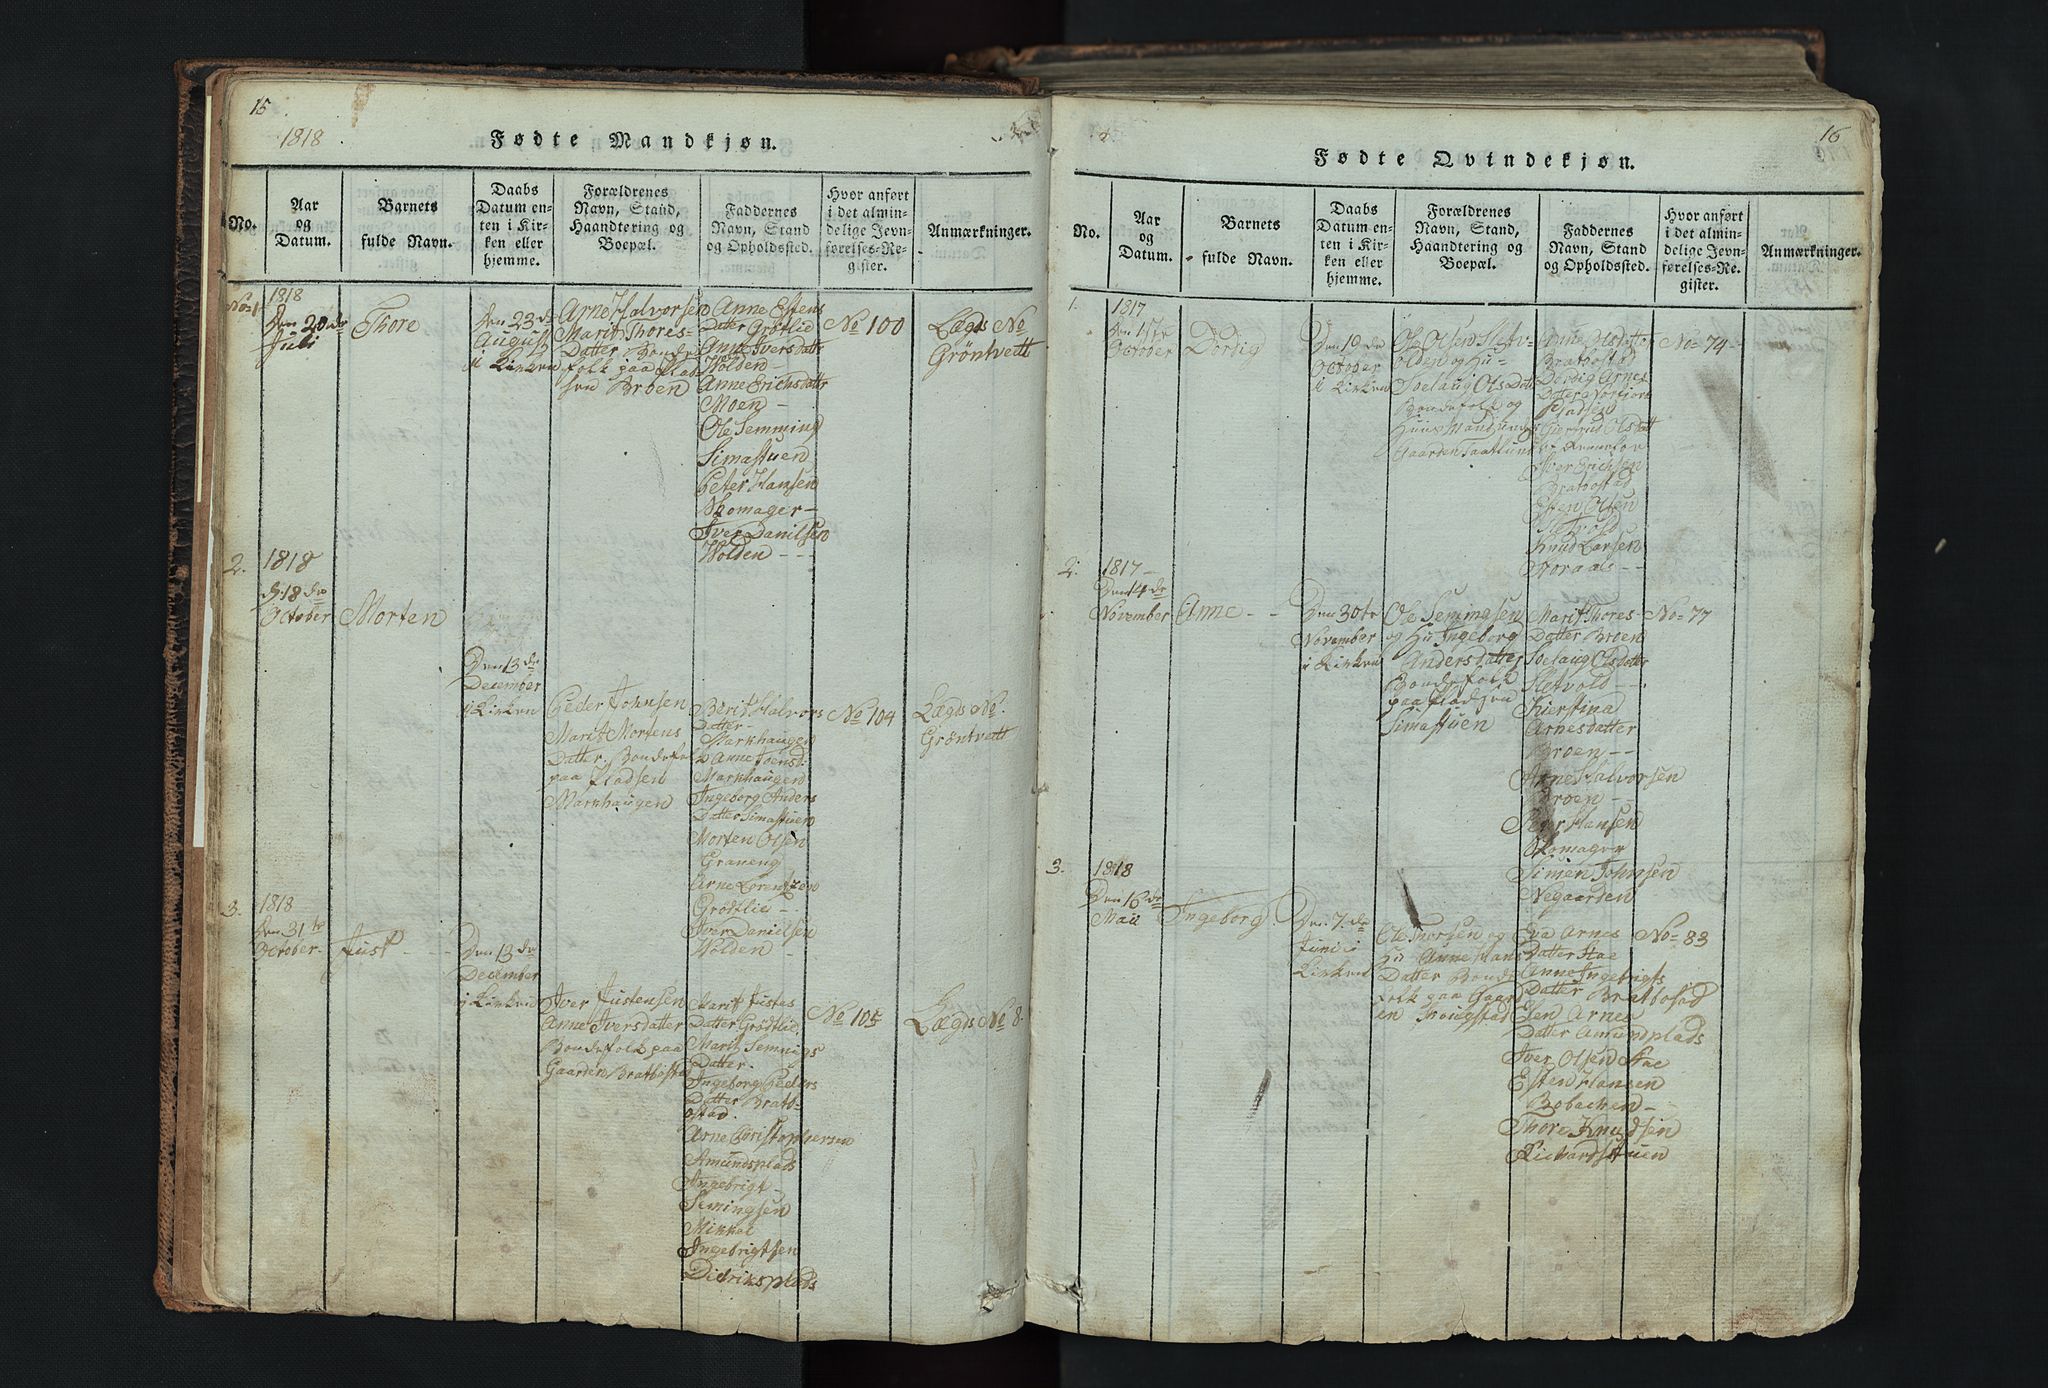 15
1818
Fødte Mandkjøn.
No.
Aar
og
Datum.
Barnets
fulde Navn.
Daabs
Datum en-
ten i Kir-
ken eller
hjemme.
Forældrenes
Navn, Stand,
Haandtering og
Boepæl.
Faddernes
Navn, Stand
og Opholdsted.
Hvor anført
i det almin-
delige Jevn-
førelses-Re-
gister.
Anmærkninger.
No 1
1818
Den 20de
Juli
Thore
Den 23de
August
i Kirken
Arne Halvorsen
Marit Thores-
Datter Bonde
folk paa Plad
sen Broen
Anne Estens
Datter Grötlie
Anne Iversdattr
Wolden -
Anne Erichsdattr
Moen -
Ole Semming
Simastuen
Peter Hansen
Skomager -
Iver Danilsen
Wolden - - -
No 100
Lægds No
Gröntvett
2.
1818
d. 18 de
October
Morten
Den 13 de
December
i Kirken
Peder Johnsen
Marit Mortens
Datter. Bondefol
paa Pladsen
Markhaugen
Berit Halvors
Datter -
Markhaugen
Anne Joensd.
Markhaugen
Ingeborg Anders
Datter Simastuen
Morten Olsen
Graneng
Arne Lorentzen
Grödtlie -
Iver Danielsen
Wolden -
No 104
Lægds No.
Gröntvett
3.
1818
Den 31te
October
Just - - -
Den 13 de
December
i Kirken
Iver Justensen
Anne Iversdatter
Bondefolk paa
Gaarden Bratbøstad
Marit Justas
Datter Grödtlie
Marit Semnigs
Datter.
Ingeborg Peders
Datter Bratb-
ostad.
Arne Christophersen
Amundsplads
Ingebrigt -
Semingsen
Mikkel
Ingebrigtsen
Didriksplads
No 105
Lægds No 8.
16
Fødte Qvindekjøn.
No.
Aar
og
Datum.
Barnets
fulde Navn.
Daabs
Datum en-
ten i Kir-
ken eller
hjemme.
Forældrenes
Navn, Stand,
Haandtering og
Boepæl.
Faddernes
Navn, Stand
og Opholdsted.
Hvor anført
i det almin-
delige Jevn-
førelses-Re-
gister.
Anmærkninger.
1.
1817
Den 1ste
October
Dordig
October
i Kirken
Ole Olsen Sletv-
olden og Hu-
Soelaug Ols Datt
Bondefolk og
Gaarden
Anne Olsdatter
Bratbostad
Dordig Arnes
Datter
Pladsen
Giertrud Olsdatt
Iver Erichsen
Bratbostad
Esten Olsen
Sletvold
Knud Larsen
Storaas - -
No 74 -
2.
1817 -
Den 14 de
November
Anne - -
Den 30te
November
i Kirken
Ole Semmingsen
og Hu Ingeborg
Andersdatter
Bondefolk
paa Pladsen
Simastuen
Marit Thores
Datter Broen
Soelaug Olsdatter
Sletvold - -
Kierstina
Arnesdatter
Broen - -
Arne Halvorsen
Broen - -
Peder Hansen
Skomager
Simen Johnsen
Negaarden
No 77
3.
1818
Den 16de
Maii
Ingeborg
Den 7. de
Junii i
Kirken
Ole Thorsen og
Hu Anne Hans
Datter Bonde
folk paa Gaard
en
Eva Arnes
Datter Aae
Anne Ingebrigts
Datter Bratbostad
Elen Arnes
Datter Amundplads
Iver Olsen Aae
Esten Hansen
Bobacken -
Thore Knudsen
Richardstuen
No 83